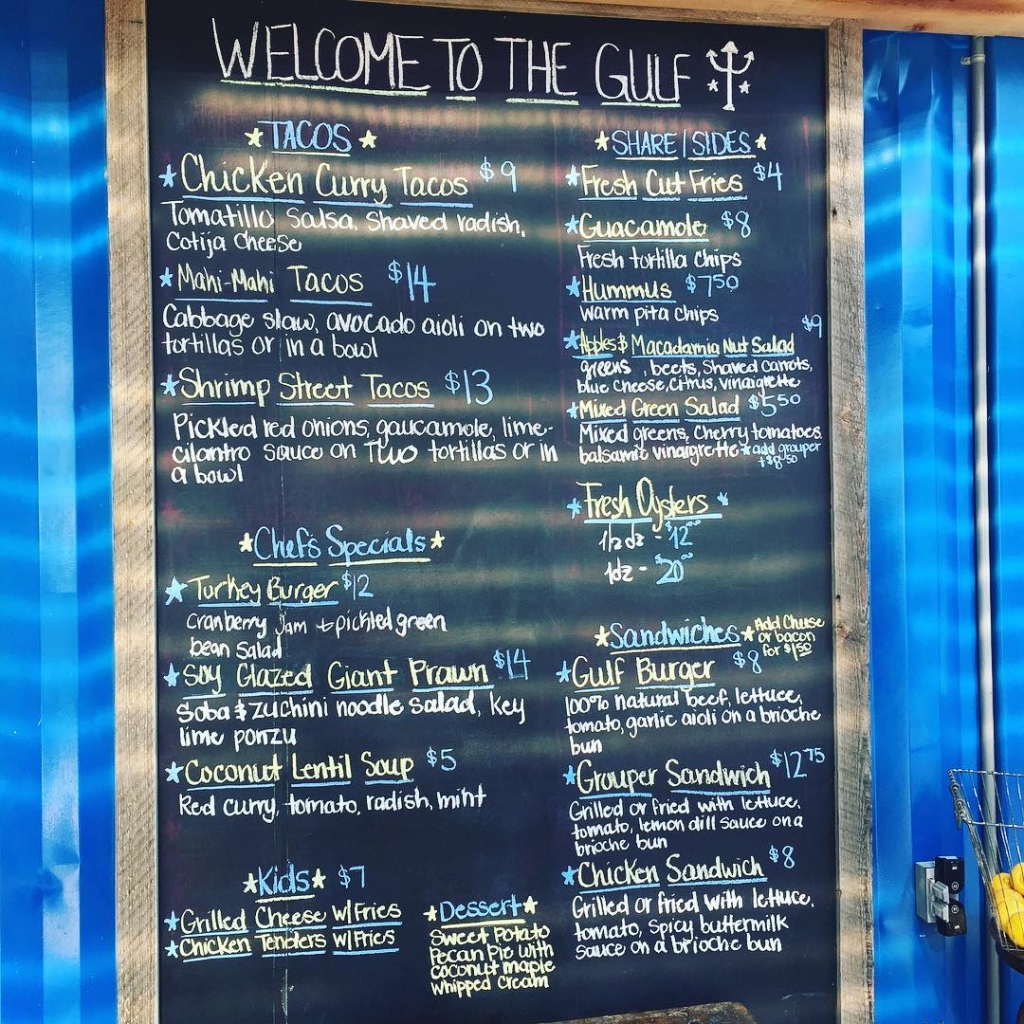 WELCOME TO THE GULF
TACOS
Chicken Curry Tacos $9
Tomatillo Salsa, Shaved radish,
Cotija Cheese
Mahi-Mahi Tacos $14
Cabbage slaw, avocado aioli on two
tortillas or in a bowl
Shrimp Street Tacos $13
Pickled red onions, gaucamole, lime-
cilantro sauce on Two tortillas or in
a bowl
Chef's Specials
Turkey Burger $12
cranberry jam + pickled green
bean Salad
Soy Glazed Giant Prawn $14
Soba & zuchini noodle salad, key
lime ponzu
Coconut Lentil Soup $5
Red curry, tomato, radish, mint
Kids $7
Grilled Cheese w/Fries
Chicken Tenders w/Fries
Dessert
Sweet Potato
Pecan Pie with
coconut maple
whipped cream
SHARE/SIDES
Fresh Cut Fries $4
Guacamole $8
Fresh tortilla chips
Hummus $7.50
warm pita chips
$9
Apples & Macadamia Nut Salad
greens, beets, Shaved carrots,
blue cheese, citrus, vinaigrette
Mixed Green Salad $5.50
Mixed greens, Cherry tomatoes,
balsamic vinaigrette *add grouper
+$8.50
Fresh Oysters
1/2 dz - $12.00
1dz - $20.00
Sandwiches
Add Cheese
or bacon
for $1.50
Gulf Burger $8
100% natural beef, lettuce,
tomato, garlic aioli on a brioche
bun
Grouper Sandwich $12.75
Grilled or fried with lettuce,
tomato, lemon dill sauce on a
brioche bun
Chicken Sandwich $8
Grilled or fried with lettuce,
tomato, spicy buttermilk
sauce on a brioche bun